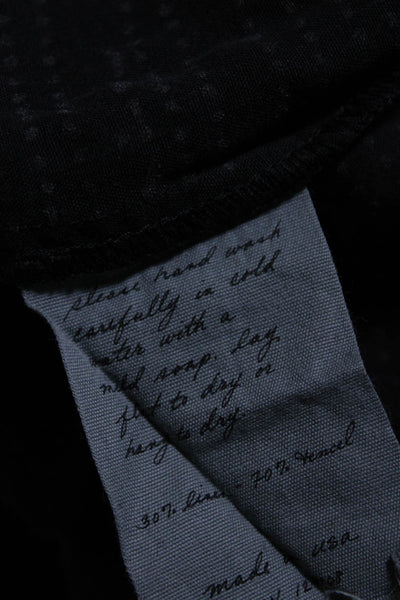 please hand wash
carefully in cold
water with a
mild soap. Lay
flat to dry or
hang to dry.
30% linen - 70% Tencel
made in usa.